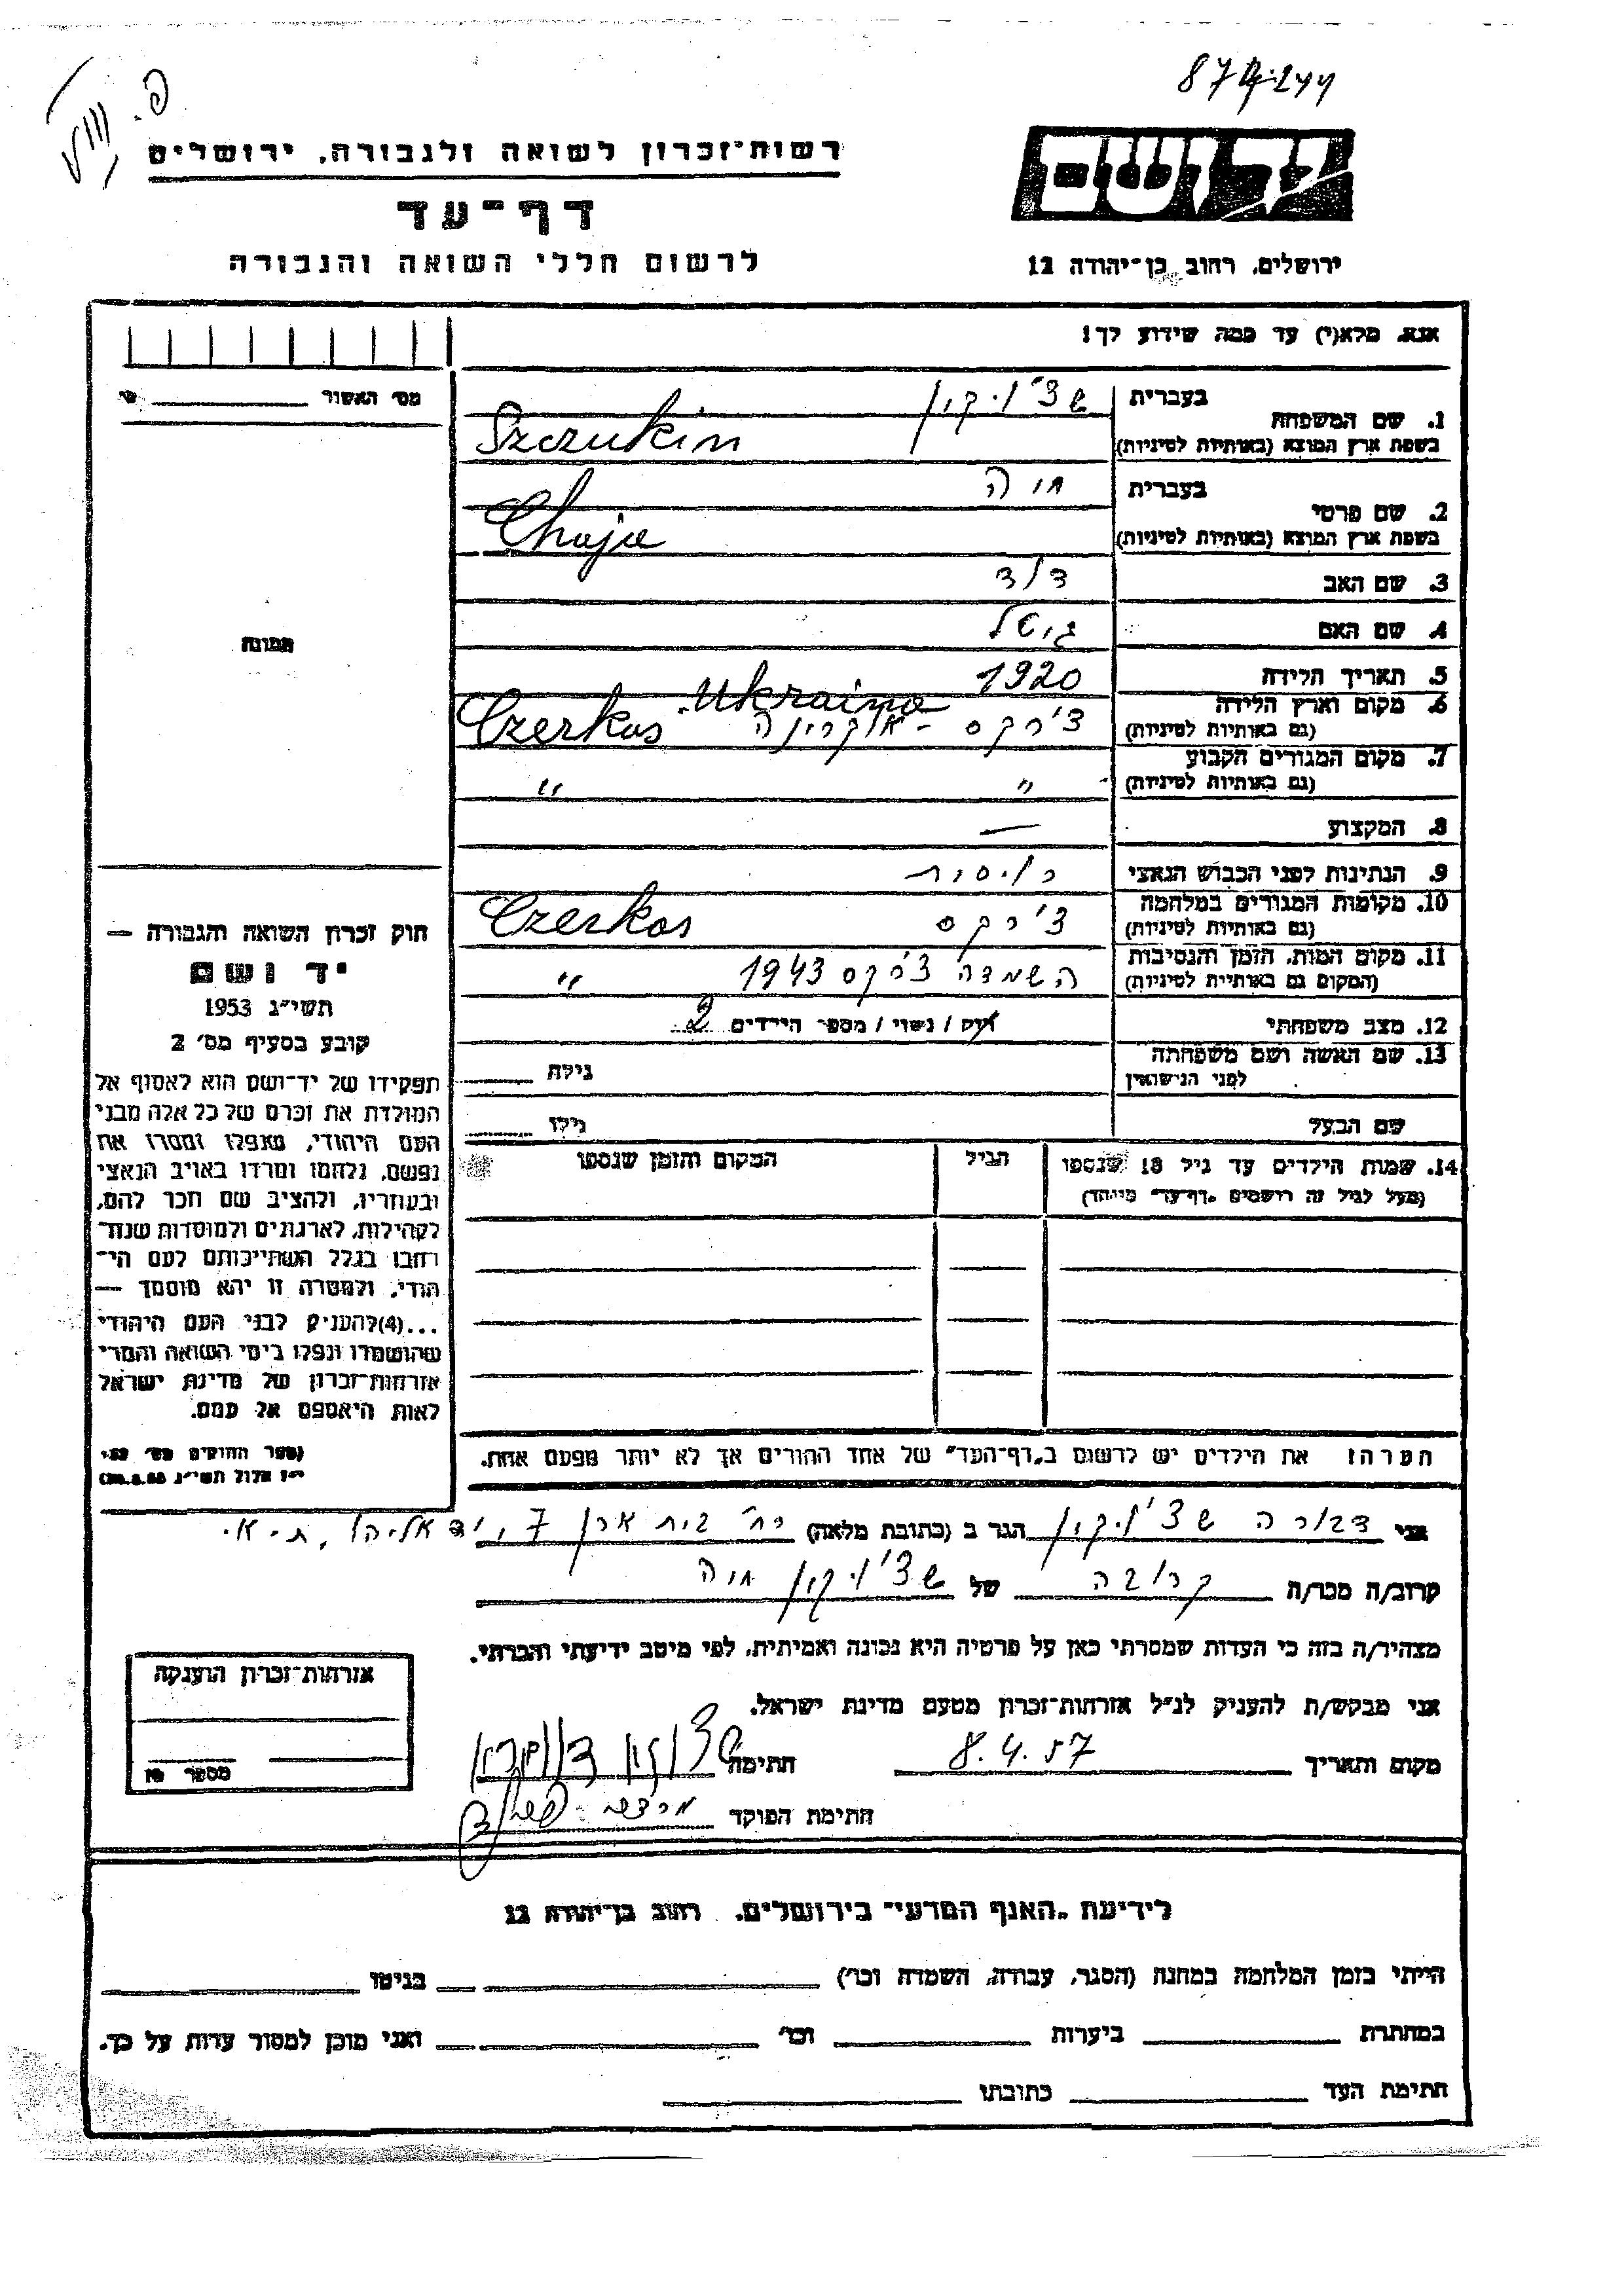 874.244
רשות־זכרון לשואה ולגבורה, ירושלים
דף־עד
לרשום חללי השואה והגבורה
ירושלים, רחוב בן־יהודה 12
אנא, מלא(י) עד כמה שידוע לך!
מס׳ האשור
1. שם המשפחה בעברית שצ'וקין
בשפת ארץ המוצא (באותיות לטיניות) Szczukin
2. שם פרטי בעברית חיה
בשפת ארץ המוצא (באותיות לטיניות) Chaja
3. שם האב דוד
4. שם האם
תמונה
5. תאריך הלידה 1920
6. מקום וארץ הלידה (גם באותיות לטיניות) צ'רקס - אוקרינה Czerkas. Ukraina
7. מקום המגורים הקבוע (גם באותיות לטיניות) " "
8. המקצוע —
9. הנתינות לפני הכבוש הנאצי רוסית
10. מקומות המגורים במלחמה (גם באותיות לטיניות) צ'רקס Czerkas
11. מקום המות, הזמן והנסיבות (המקום גם באותיות לטיניות) השמדה צ'רקס 1943 "
12. מצב משפחתי רווק / נשוי / מספר הילדים 2
13. שם האשה ושם משפחתה לפני הנישואין גילה
שם הבעל גילו
14. שמות הילדים עד גיל 18 שנספו הגיל המקום והזמן שנספו
(מעל לגיל זה רושמים „דף־עד" מיוחד)
חוק זכרון השואה והגבורה —
יד ושם
תשי״ג 1953
קובע בסעיף מס׳ 2
תפקידו של יד־ושם הוא לאסוף אל
המולדת את זכרם של כל אלה מבני
העם היהודי, שנפלו ומסרו את
נפשם, נלחמו ומרדו באויב הנאצי
ובעוזריו, ולהציב שם וזכר להם,
לקהילות, לארגונים ולמוסדות שנח־
רבו בגלל השתייכותם לעם הי־
הודי, ולמטרה זו יהא מוסמך —
...(4)להעניק לבני העם היהודי
שהושמדו ונפלו בימי השואה והמרי
אזרחות־זכרון של מדינת ישראל
לאות היאספם אל עמם.
(ספר החוקים מס׳ 132
י״ז אלול תשי״ג 28.8.53)
הערה: את הילדים יש לרשום ב„דף־העד" של אחד ההורים אך לא יותר מפעם אחת.
אני דבורה שצ'וקין הגר ב (כתובת מלאה) רח' בית אל 7, יד אליהו, ת-א.
קרוב/ה מכר/ה קרובה של שצ'וקין חיה
מצהיר/ה בזה כי העדות שמסרתי כאן על פרטיה היא נכונה ואמיתית, לפי מיטב ידיעתי והכרתי.
אני מבקש/ת להעניק לנ״ל אזרחות־זכרון מטעם מדינת ישראל.
מקום ותאריך 8.4.57 חתימה
חתימת הפוקד
אזרחות־זכרון הוענקה
מספר
לידיעת „האגף המדעי" בירושלים, רחוב בן־יהודה 12
הייתי בזמן המלחמה במחנה (הסגר, עבודה, השמדה וכו׳) בגיטו
במחתרת ביערות וכו׳ ואני מוכן למסור עדות על כך.
חתימת העד כתובתו